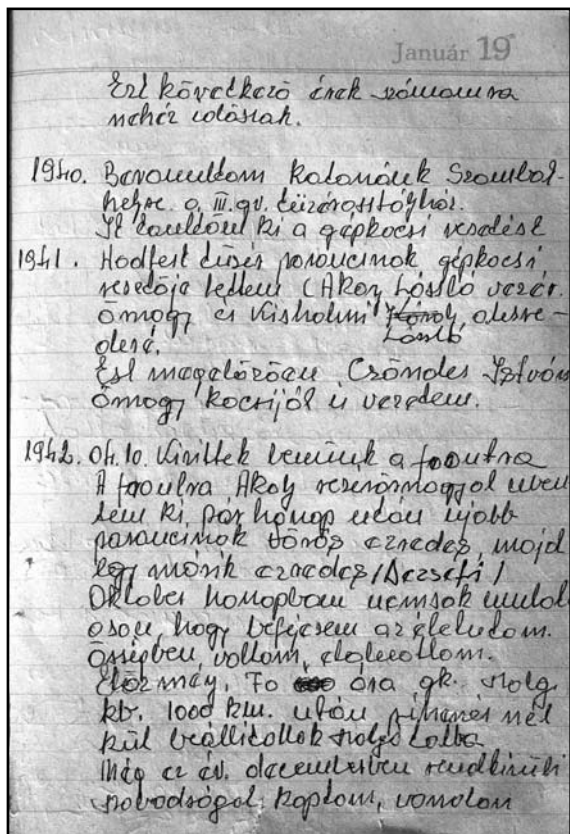 Január 19
Ezt követkető évek számomra
nehéz időszak.
1940. Bevonultam katonának Szombat-
helyre a III. gv. tüzérosztályhoz.
It tanultam ki a gépkocsi vezetést
1941. Hadtest tüzér parancsnok gépkocsi
vezetője lettem (Ákoy László vezér.
őrnagy és Kisholmi Károly alezre-
László
desé.
Ezt megelőzően Csöndes István
őrnagy kocsiját is vezettem.
1942. 04. 10. Kivittek bennünk a frontra
A frontra Ákoy vezérőrnagyal men
tem ki, pár hónap után újabb
parancsnok Vörös ezredes, majd
egy másik ezredes / Dezsefi /
Oktober honapban nemsok mulot
oson, hogy befejezem az életutam.
Őrségben voltam, elaludtam.
Előzmény. 70 óra gk. szolg.
kb. 1000 km. után pihenés nél
kül beállitottak szolgálatba
Még ez év. decemberben rendkivüli
szabadságot kaptam, vonatom